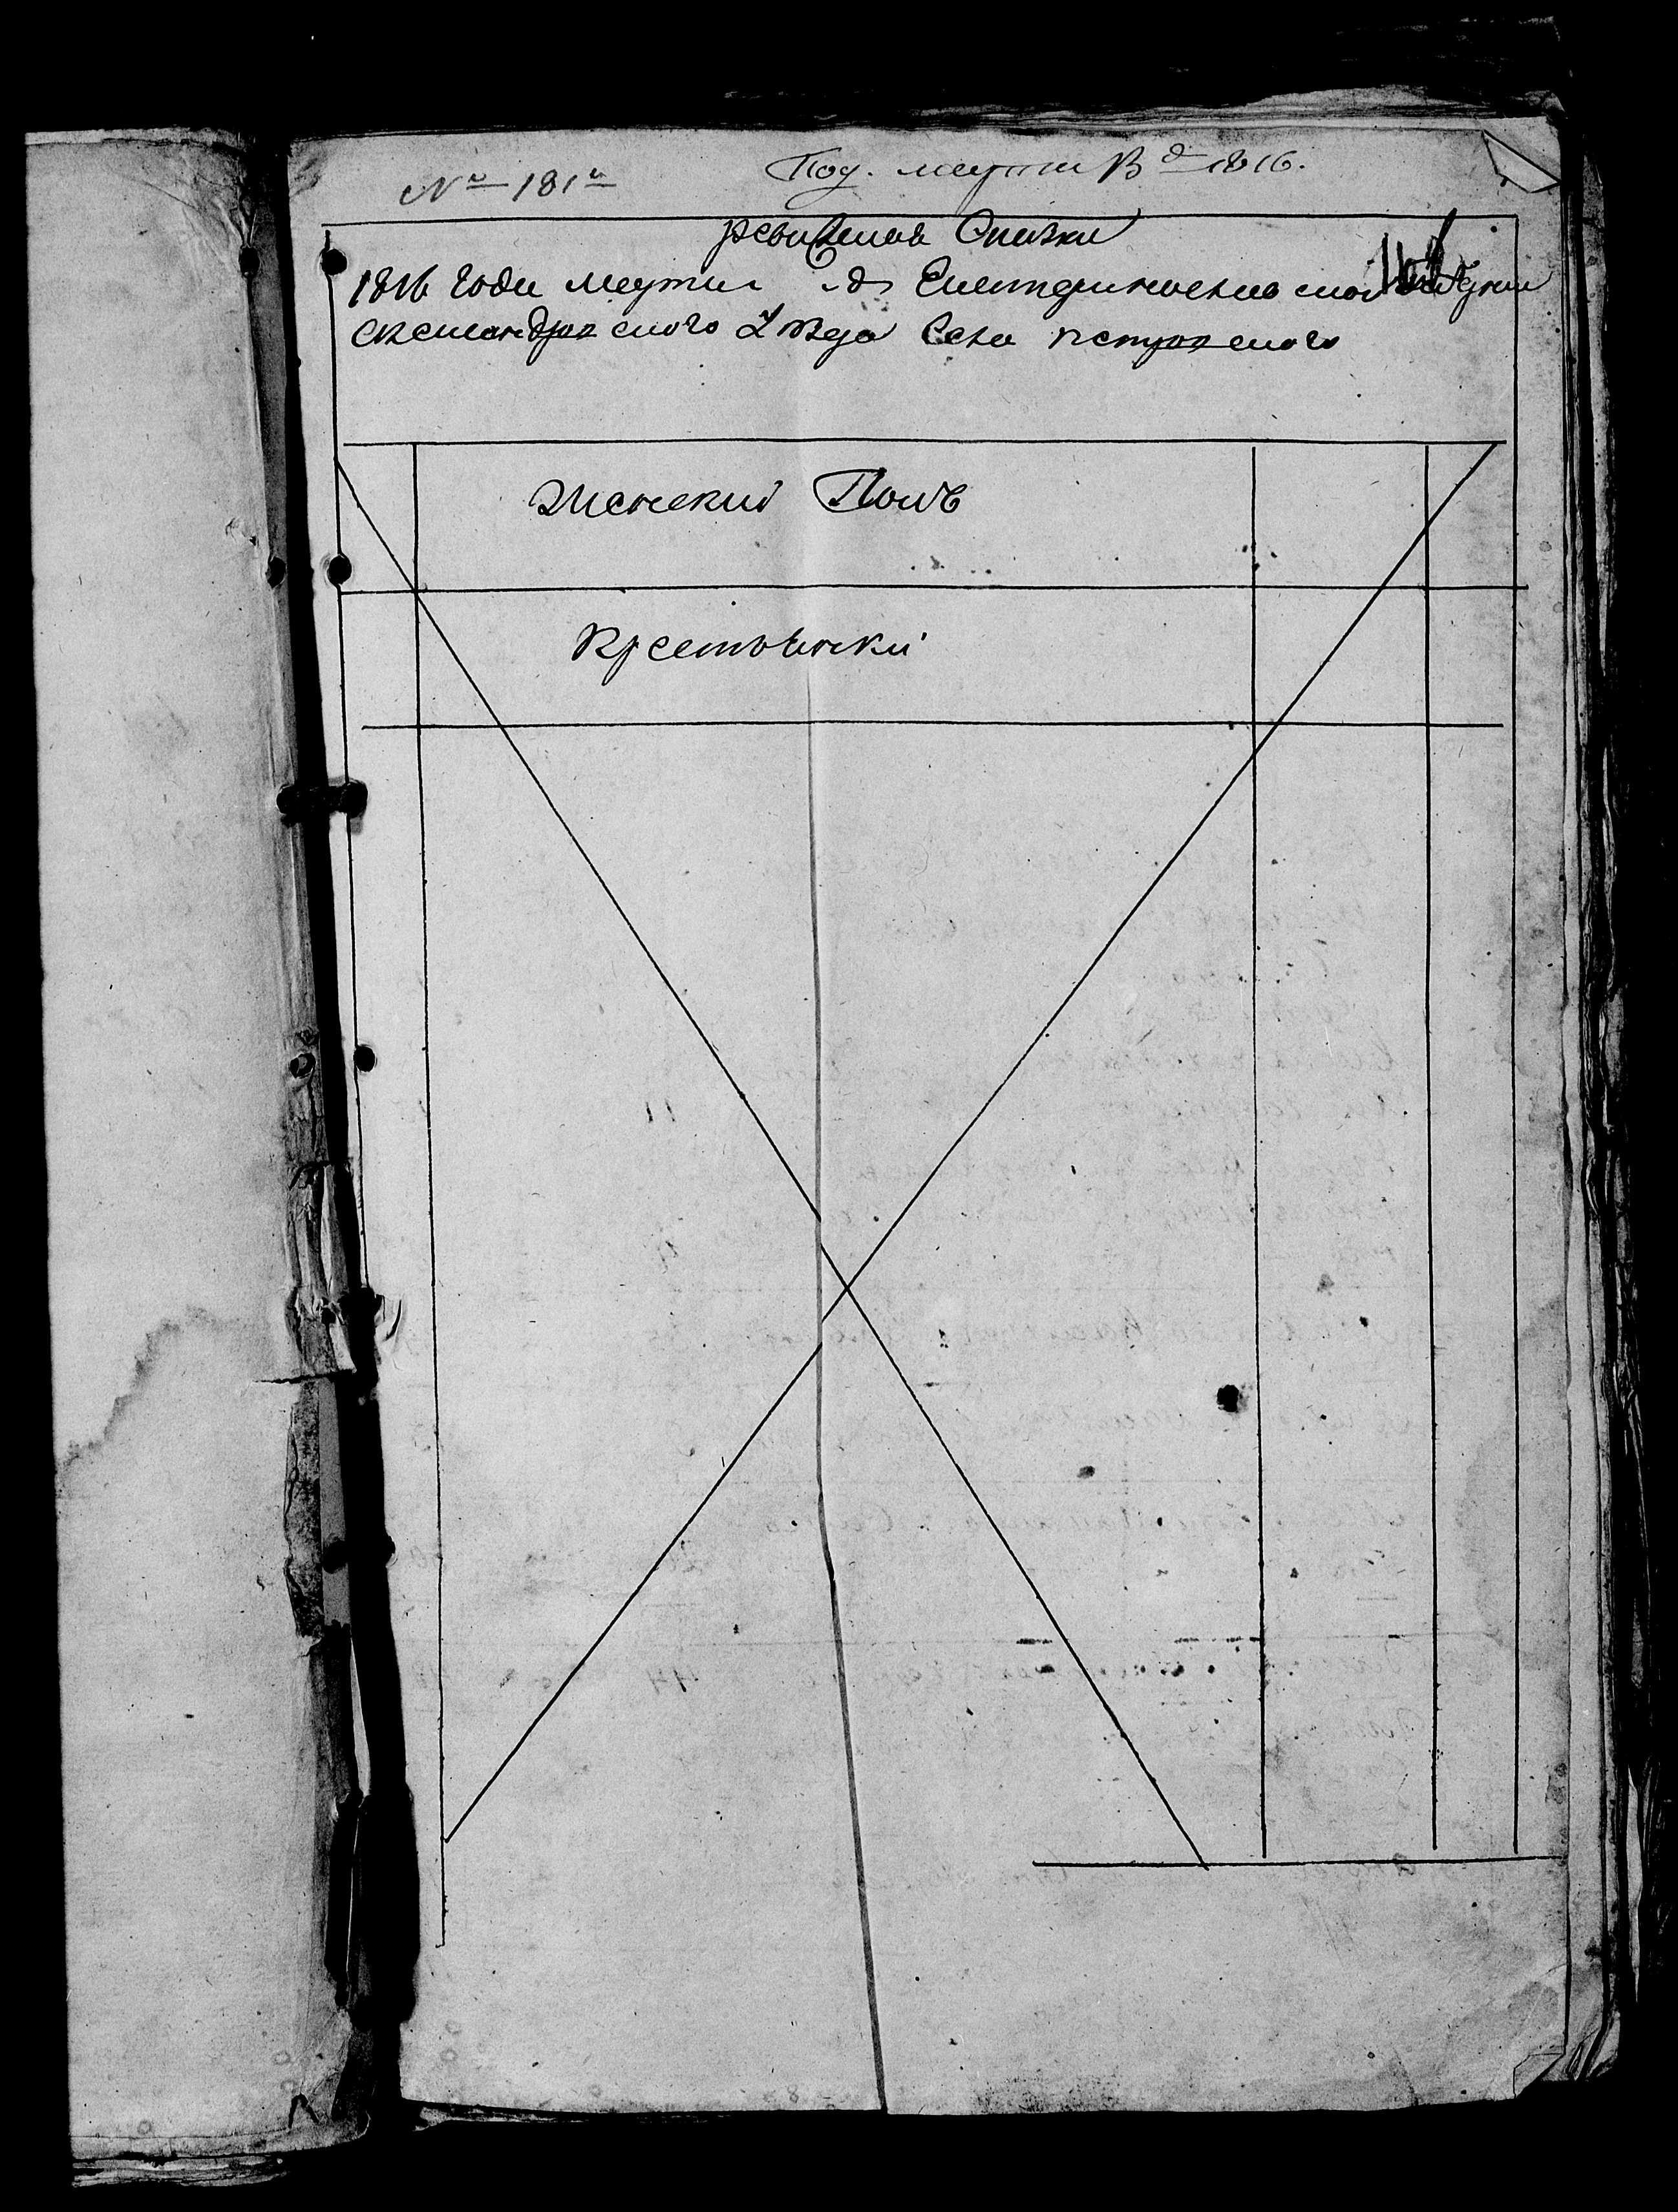 № 181й
Под. марта 3 д 1816.
ревизская Сказка
1816 года марта д Екатеринославской Губернии
Александровского Уезда Села петровского
Женский Полъ
крестьянки